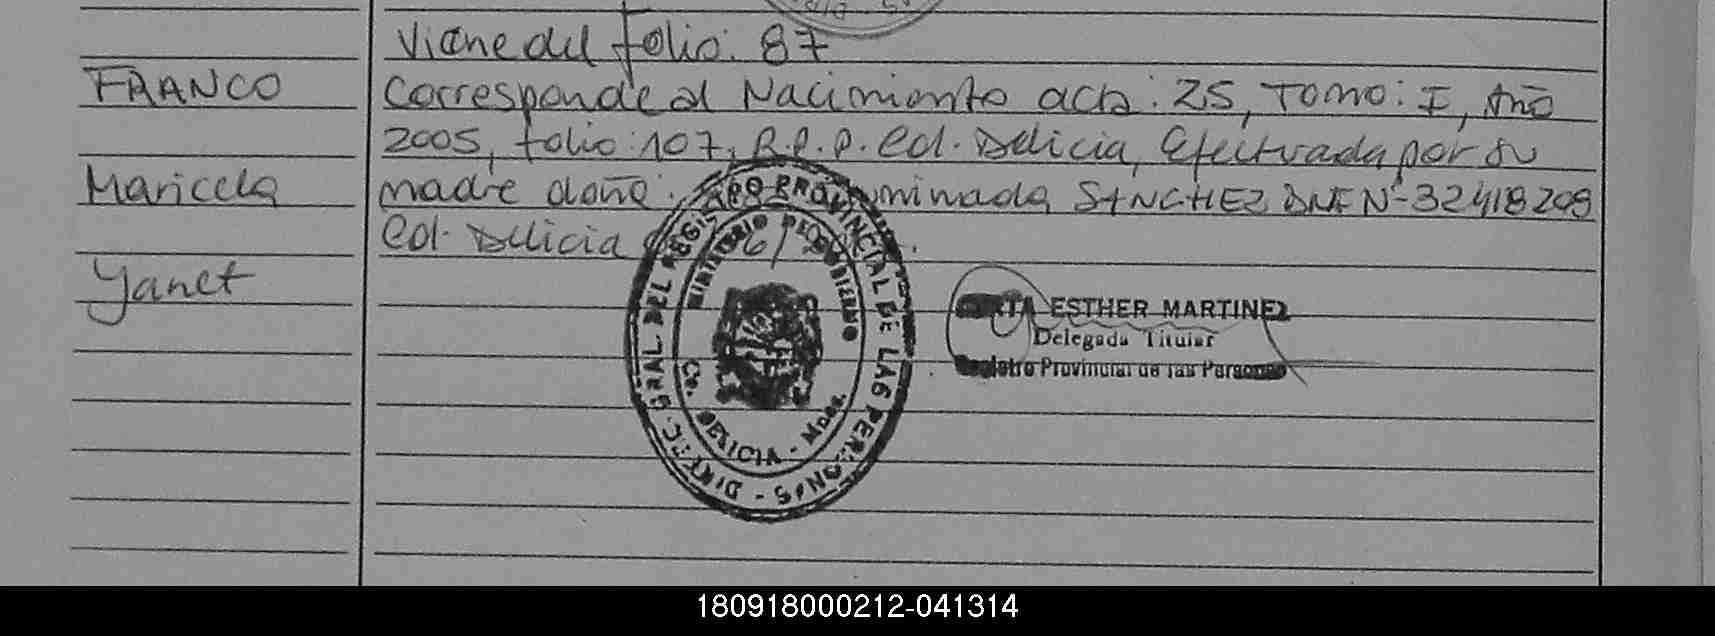 Viene del folio: 87
FRANCO
Corresponde al Nacimiento acta: 25, Tomo: I, Año
2005, folio: 107, R.P.P. Col. Delicia, Efectuada por su
Maricela
madre doña: uminada SANCHEZ DNI Nº 32418209
Col. Delicia
Yanet
ESTHER MARTINEZ
Delegada Titular
Registro Provincial de las Personas
DIREC. GRAL. DEL REGISTRO PROVINCIAL DE LAS PERSONAS
MINISTERIO DE GOBIERNO
DELICIA - Mnes.
180918000212-041314